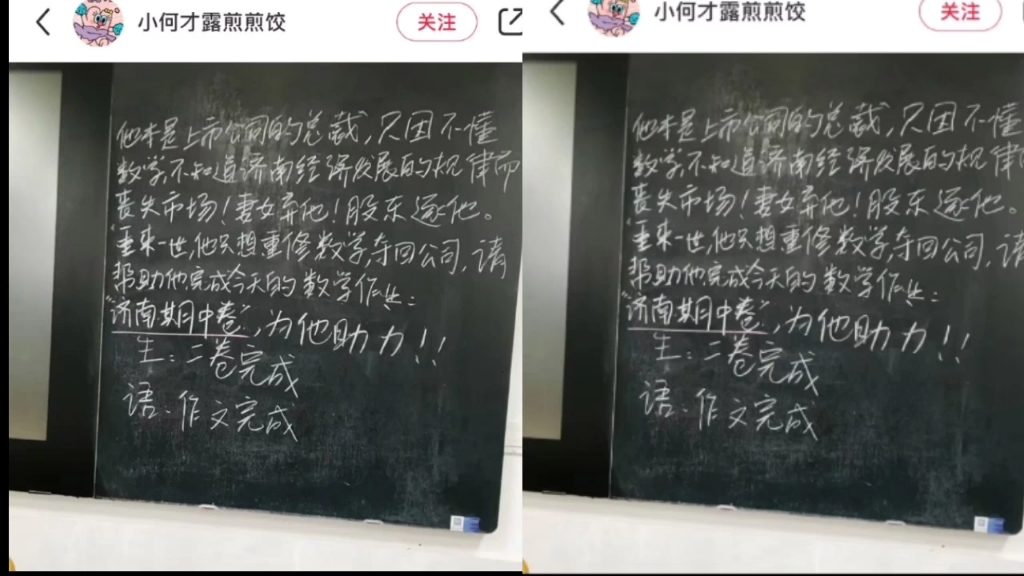 小何才露煎煎饺
关注
他本是上市公司的总裁,只因不懂
数学,不知道济南经济发展的规律而
丧失市场!妻女弃他!股东逐他。
重来一世,他只想重修数学,夺回公司,请
帮助他完成今天的数学作业:
“济南期中卷”,为他助力!!
生:二卷完成
语:作文完成
小何才露煎煎饺
关注
他本是上市公司的总裁,只因不懂
数学,不知道济南经济发展的规律而
丧失市场!妻女弃他!股东逐他。
重来一世,他只想重修数学,夺回公司,请
帮助他完成今天的数学作业:
“济南期中卷”,为他助力!!
生:二卷完成
语:作文完成